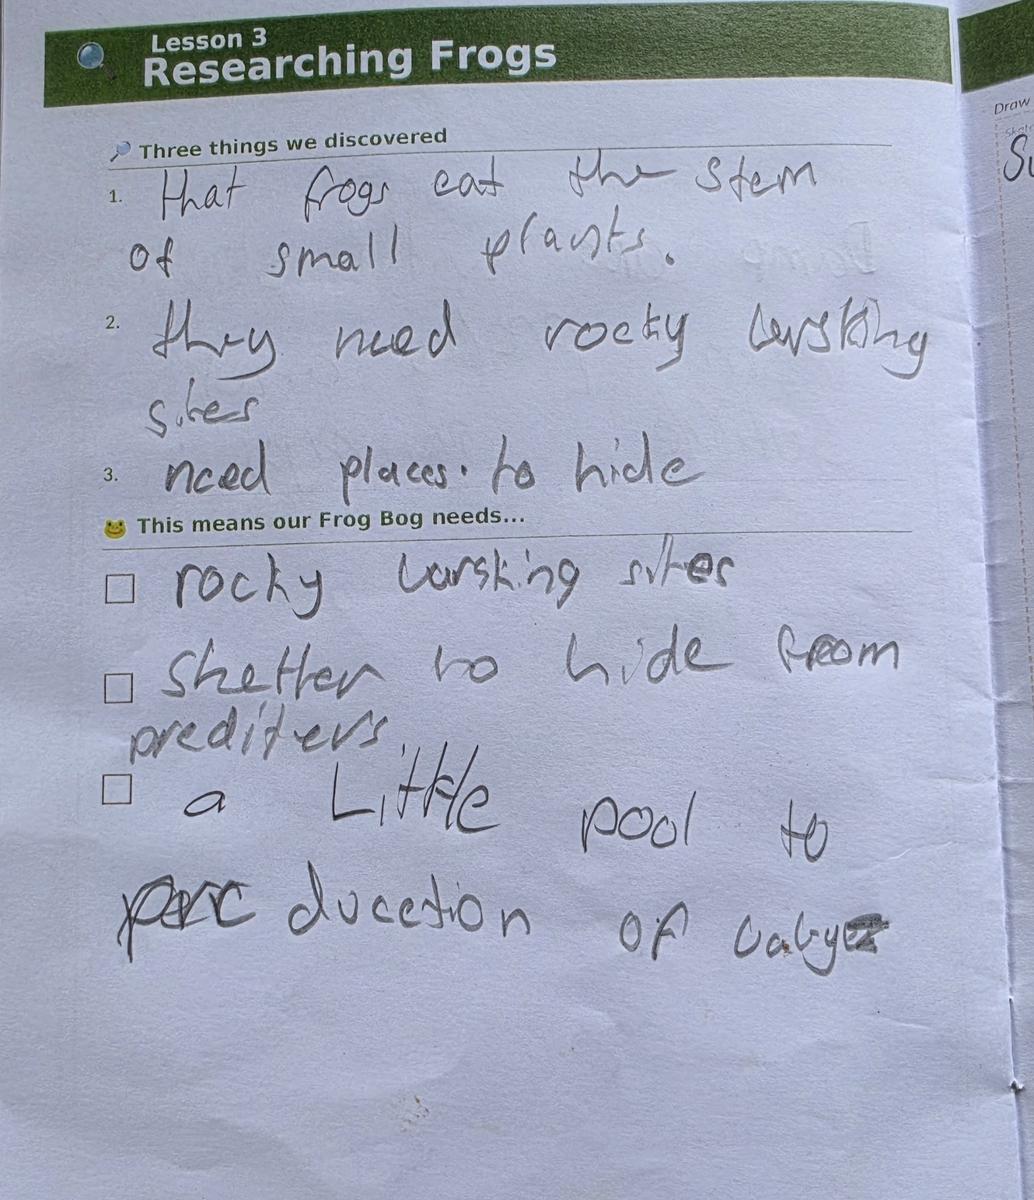 Lesson 3
Researching Frogs
Three things we discovered
1. that frogs eat the stem
of small plants.
2. they need rocky barsking
sites
3. need places. to hide
This means our Frog Bog needs...
rocky barsking sites
Shelter to hide from
prediters.
a Little pool to
duccetion of baby
Draw